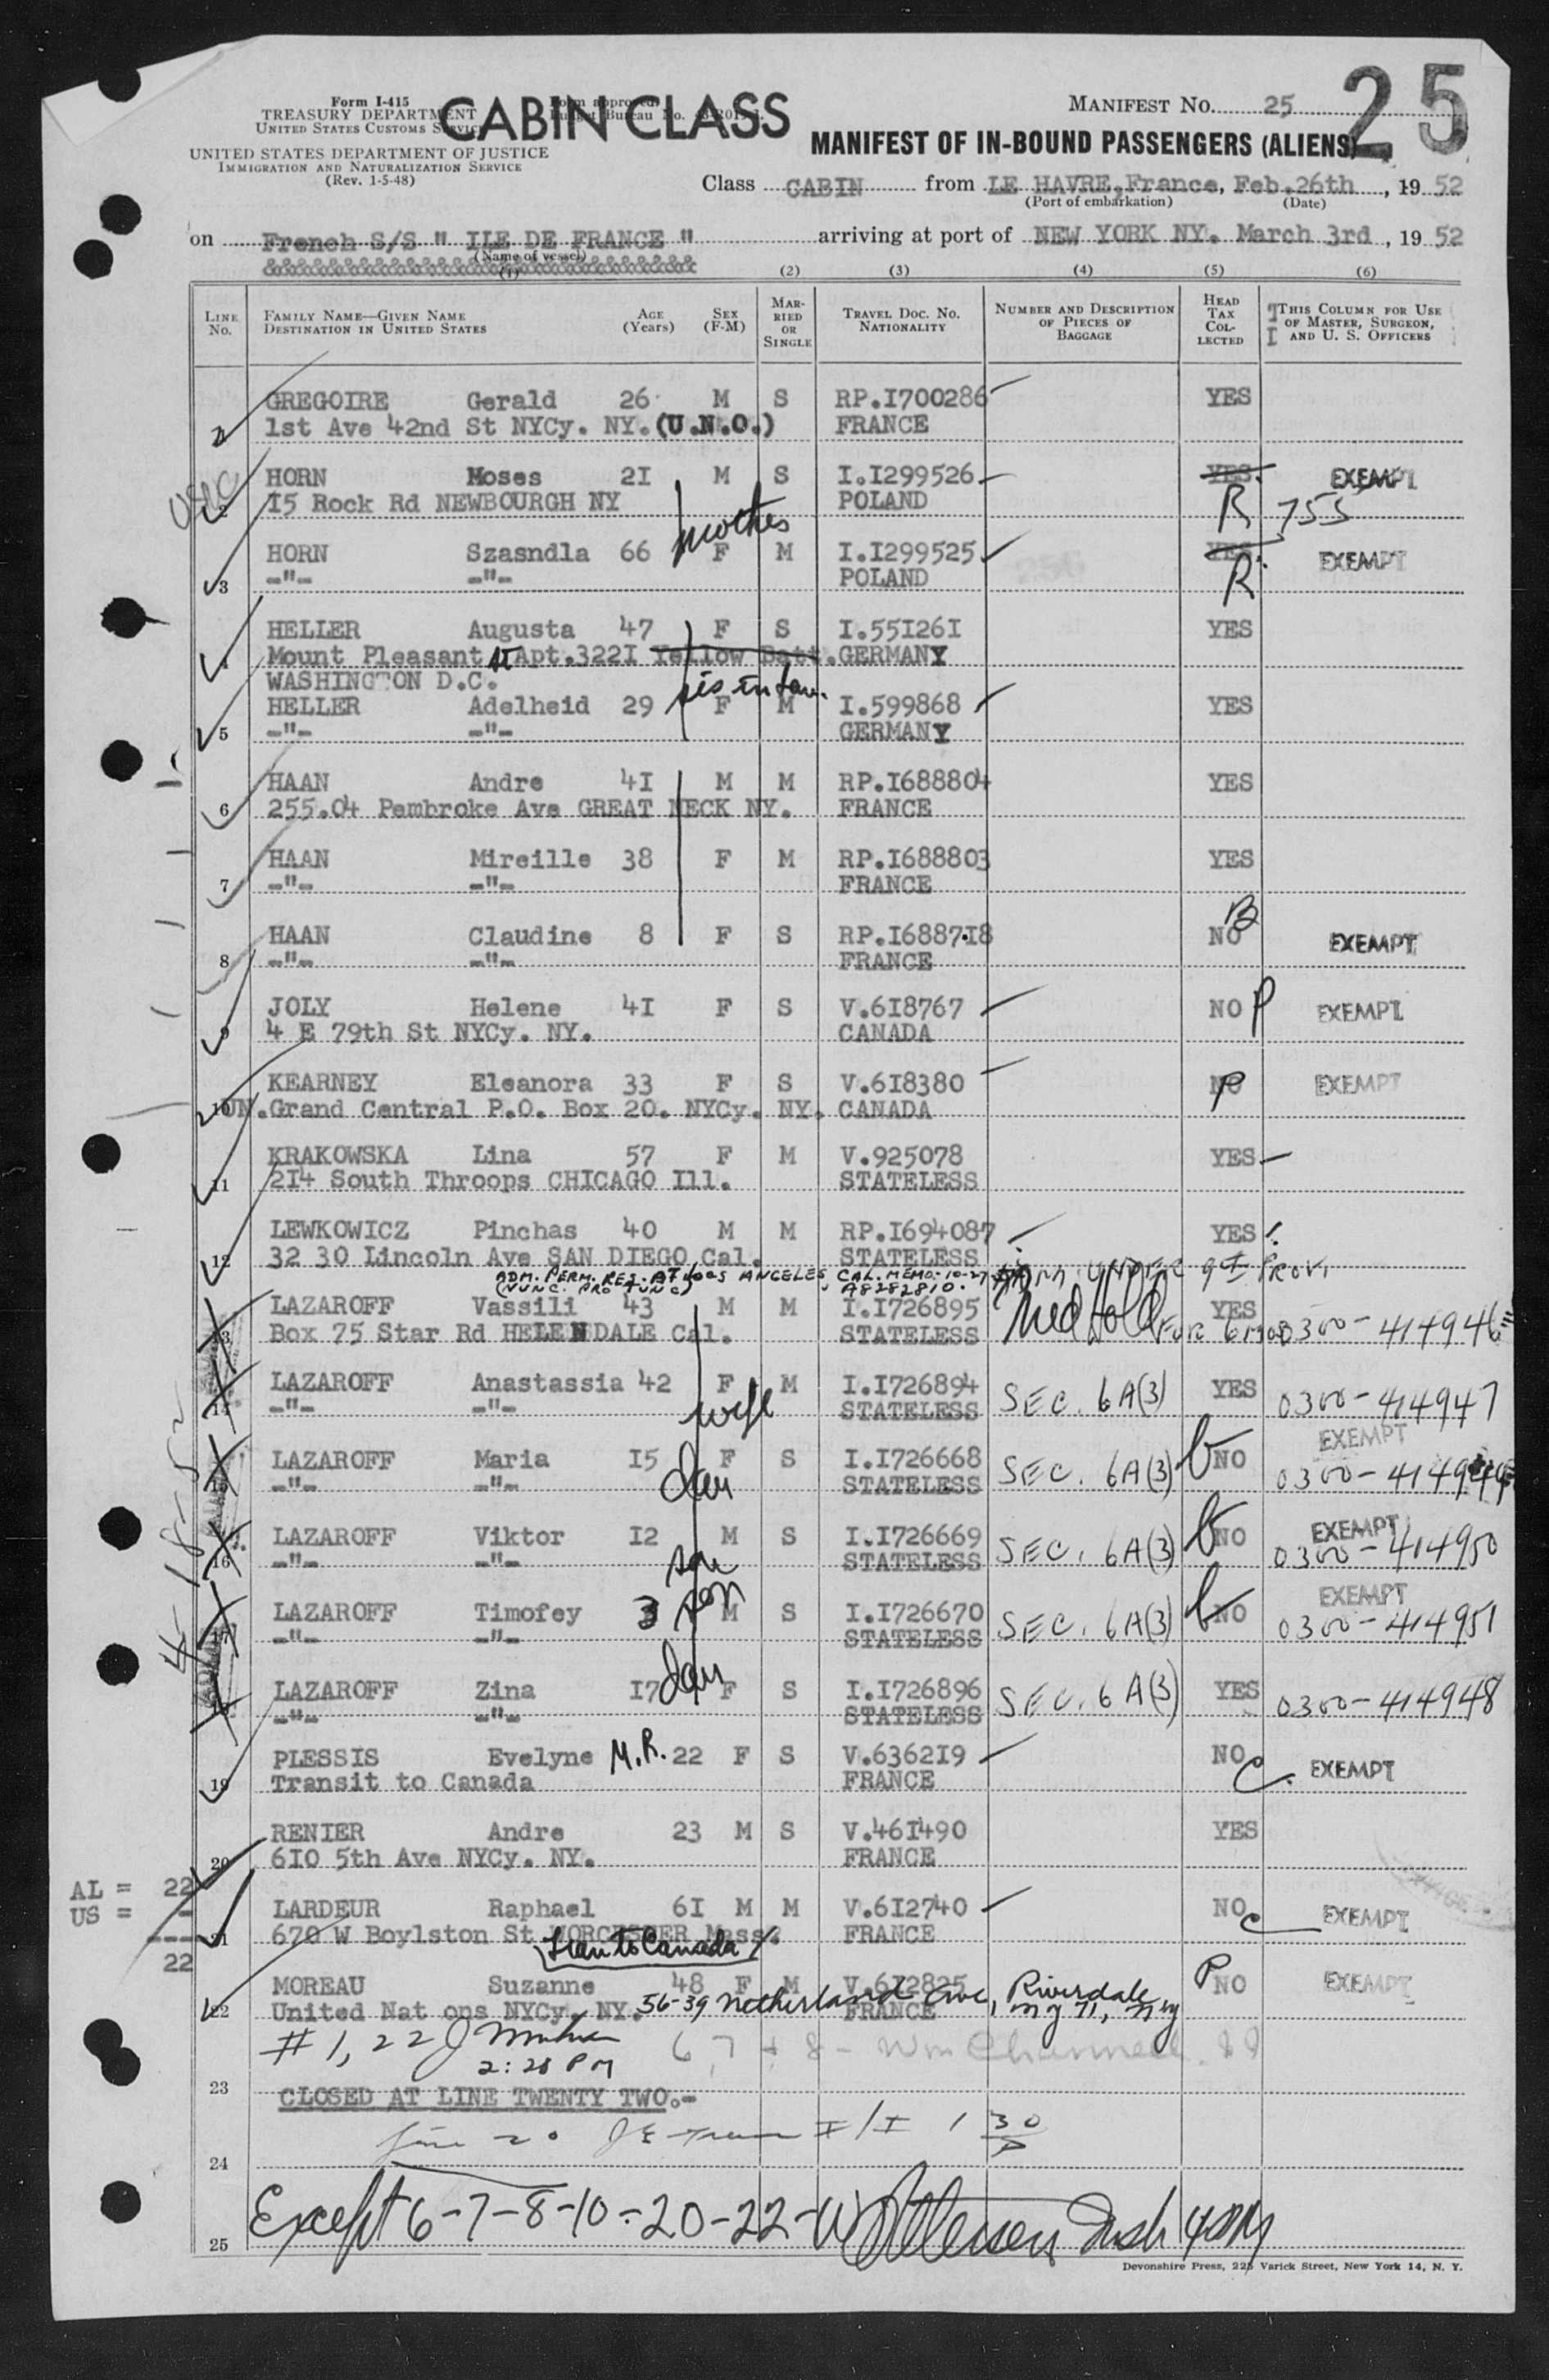 Form I-415
TREASURY DEPARTMENT
UNITED STATES CUSTOMS SERVICE
UNITED STATES DEPARTMENT OF JUSTICE
IMMIGRATION AND NATURALIZATION SERVICE
(Rev. 1-5-48)
Form approved.
Budget Bureau No.
CABIN CLASS
MANIFEST NO. 25
25
MANIFEST OF IN-BOUND PASSENGERS (ALIENS)
Class CABIN from LE HAVRE, France, Feb. 26th, 1952
(Port of embarkation) (Date)
on French S/S " ILE DE FRANCE " arriving at port of NEW YORK NY. March 3rd, 1952
(Name of vessel)
(1) (2) (3) (4) (5) (6)
LINE NO.
FAMILY NAME—GIVEN NAME
DESTINATION IN UNITED STATES
AGE (Years)
SEX (F-M)
MARRIED OR SINGLE
TRAVEL DOC. NO. NATIONALITY
NUMBER AND DESCRIPTION OF PIECES OF BAGGAGE
HEAD TAX COLLECTED
THIS COLUMN FOR USE OF MASTER, SURGEON, AND U. S. OFFICERS
GREGOIRE Gerald 26 M S RP.I700286 YES
1st Ave 42nd St NYCy. NY. (U.N.O.) FRANCE
USC
HORN Moses 2I M S I.I299526 YES. EXEMPT
2 I5 Rock Rd NEWBOURGH NY POLAND R 755
mother
HORN Szasndla 66 F M I.I299525 YES. EXEMPT
3 -"- -"- POLAND R
HELLER Augusta 47 F S I.55I26I YES
4 Mount Pleasant St Apt.322I Yellow Batt. GERMANY
WASHINGTON D.C.
sis in law.
HELLER Adelheid 29 F M I.599868 YES
5 -"- -"- GERMANY
HAAN Andre 4I M M RP.I688804 YES
6 255.04 Pembroke Ave GREAT NECK NY. FRANCE
HAAN Mireille 38 F M RP.I688803 YES
7 -"- -"- FRANCE
B
HAAN Claudine 8 F S RP.I6887I8 NO EXEMPT
8 -"- -"- FRANCE
JOLY Helene 4I F S V.6I8767 NO P EXEMPT
9 4 E 79th St NYCy. NY. CANADA
KEARNEY Eleanora 33 F S V.6I8380 NO P EXEMPT
10 UN. Grand Central P.O. Box 20. NYCy. NY. CANADA
KRAKOWSKA Lina 57 F M V.925078 YES
11 2I4 South Throops CHICAGO Ill. STATELESS
LEWKOWICZ Pinchas 40 M M RP.I694087 YES
12 32 30 Lincoln Ave SAN DIEGO Cal. STATELESS
ADM. PERM. RES. AT LOS ANGELES, CAL. MEMO. 10-27 ADM. UNDER 9th PROV.
(NUNC. PRO TUNC) A8282810.
LAZAROFF Vassili 43 M M I.I726895 Med Hold YES
13 Box 75 Star Rd HELENDALE Cal. STATELESS FOR 6 mos 0300-414946
LAZAROFF Anastassia 42 F M I.I726894 SEC. 6A(3) YES 0300-414947
14 -"- -"- wife STATELESS
EXEMPT
LAZAROFF Maria I5 F S I.I726668 SEC. 6A(3) NO 0300-414949
15 -"- -"- dau STATELESS
LAZAROFF Viktor I2 M S I.I726669 NO EXEMPT
16 -"- -"- son STATELESS SEC. 6A(3) 0300-414950
EXEMPT
LAZAROFF Timofey 3 son M S I.I726670 SEC. 6A(3) NO 0300-414951
17 -"- -"- STATELESS
LAZAROFF Zina I7 dau F S I.I726896 SEC. 6A(3) YES 0300-414948
-"- -"- STATELESS
4-18-52
PLESSIS Evelyne M.R. 22 F S V.6362I9 NO C. EXEMPT
19 Transit to Canada FRANCE
RENIER Andre 23 M S V.46I490 YES
20 6I0 5th Ave NYCy. NY. FRANCE
AL = 22
US = -
22
LARDEUR Raphael 6I M M V.6I2740 NO C EXEMPT
21 670 W Boylston St WORCESTER Mass. FRANCE
Tran to Canada
MOREAU Suzanne 48 F M V.6I2825 P NO EXEMPT
22 United Nat ons NYCy. NY. 56-39 Netherland Ave, Riverdale FRANCE NY 71, NY
# 1, 22
2:28 PM
6, 7 + 8 - Wm
23 CLOSED AT LINE TWENTY TWO.-
Line 20 I/I 1 30 P
24
25 Except 6-7-8-10-20-22- Insp 4 PM
Devonshire Press, 225 Varick Street, New York 14, N. Y.